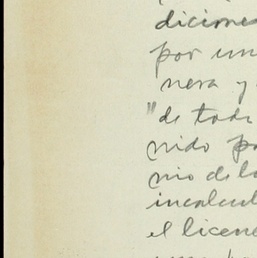 diciones
por un
nera y
"de toda
nido po
nio de lo
incalcul
el licen